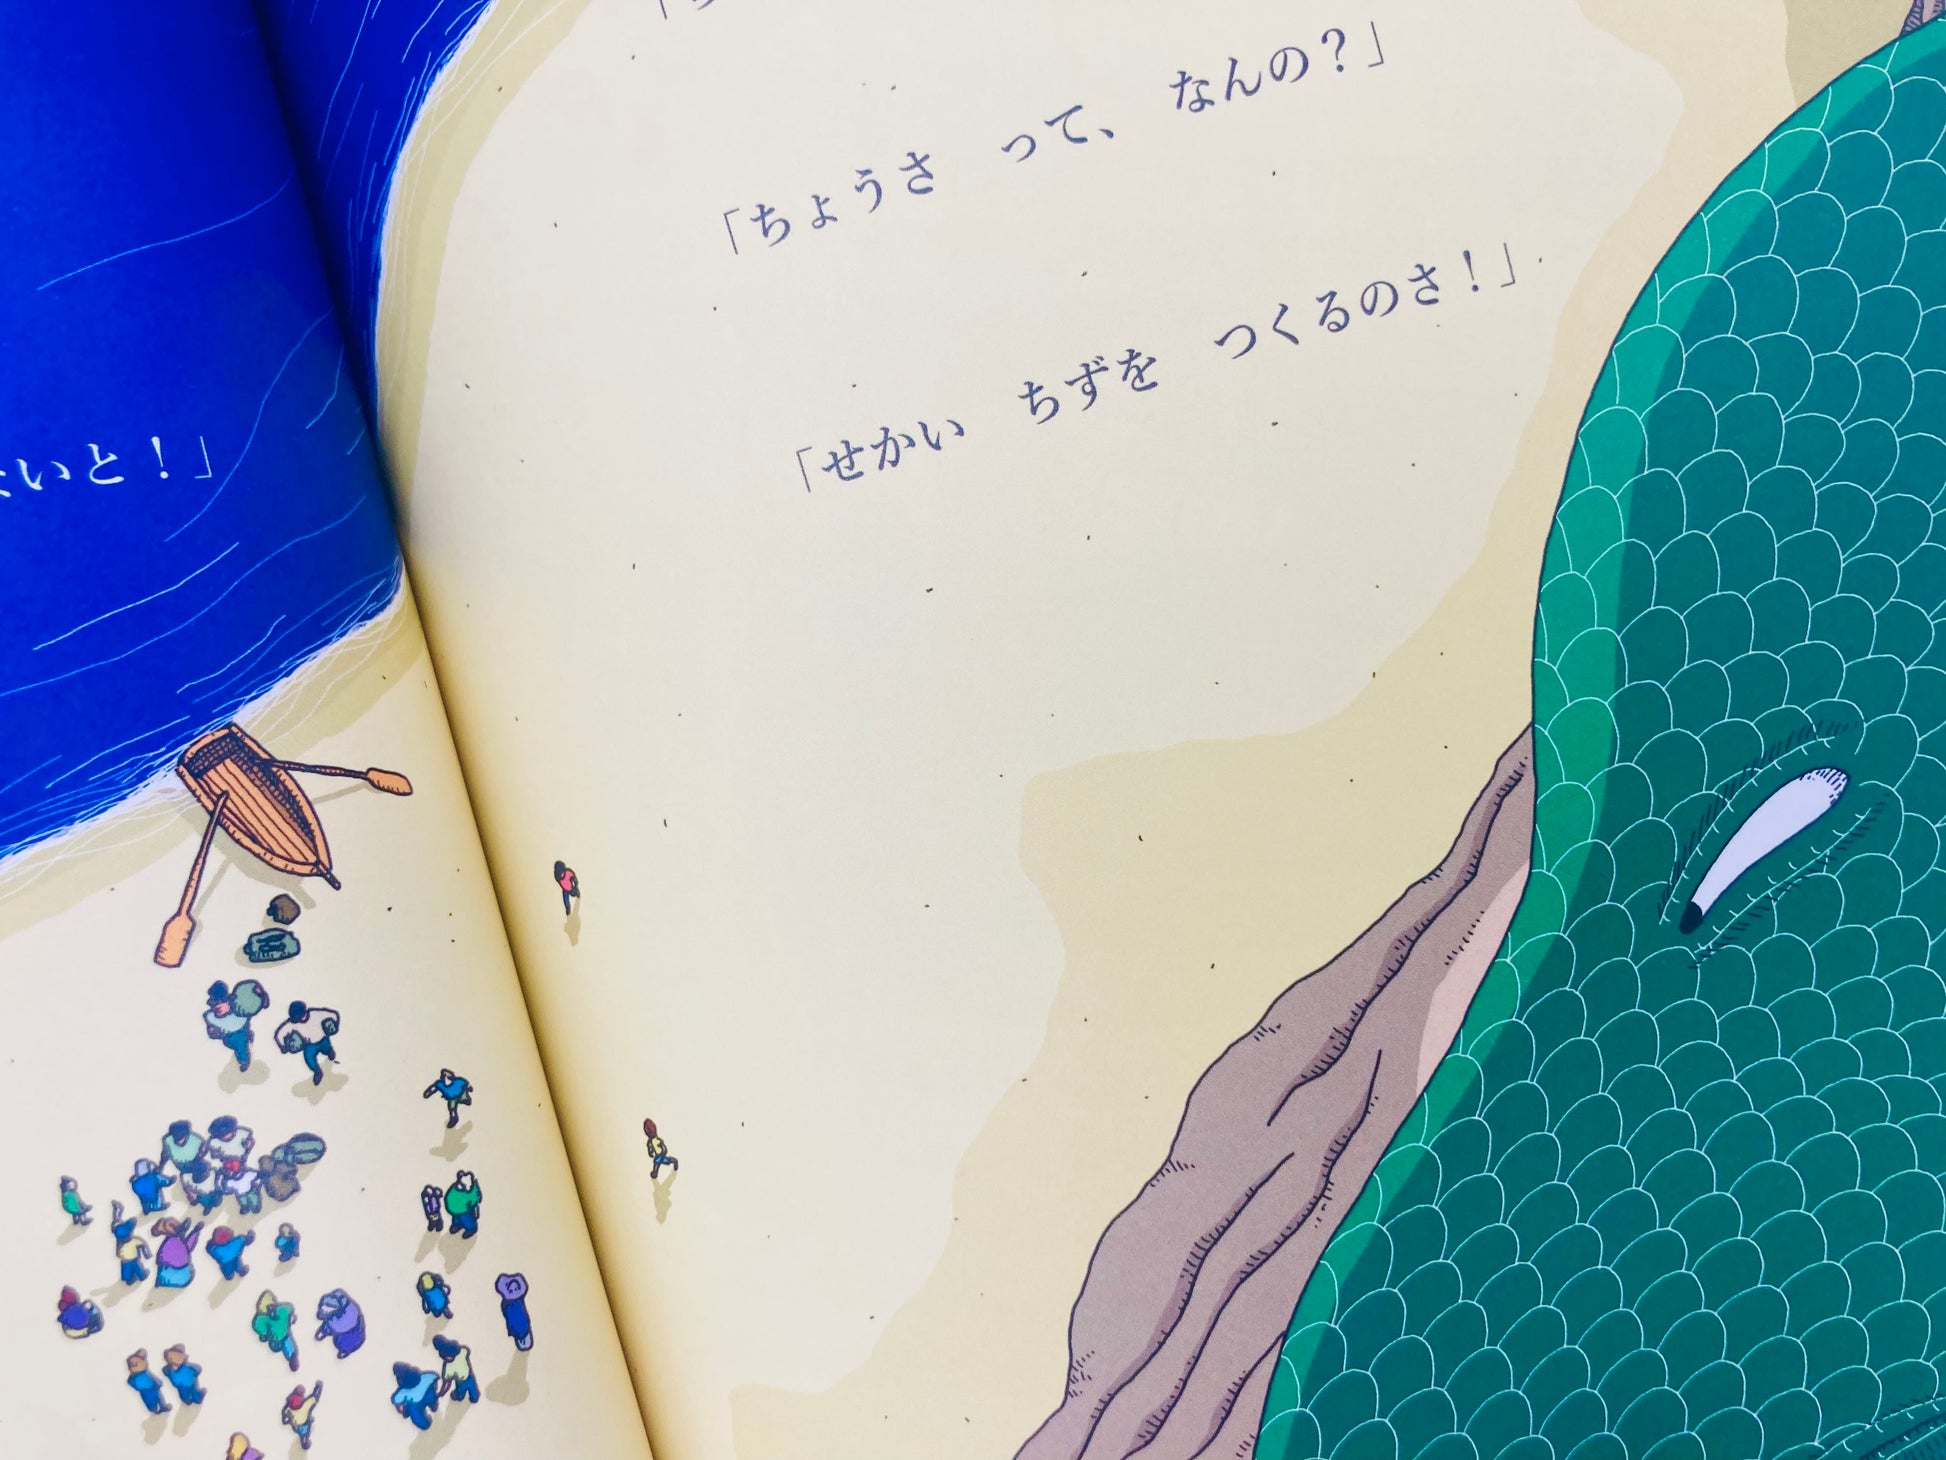 いと！」
「ちょうさ　って、　なんの？」
「せかい　ちずを　つくるのさ！」